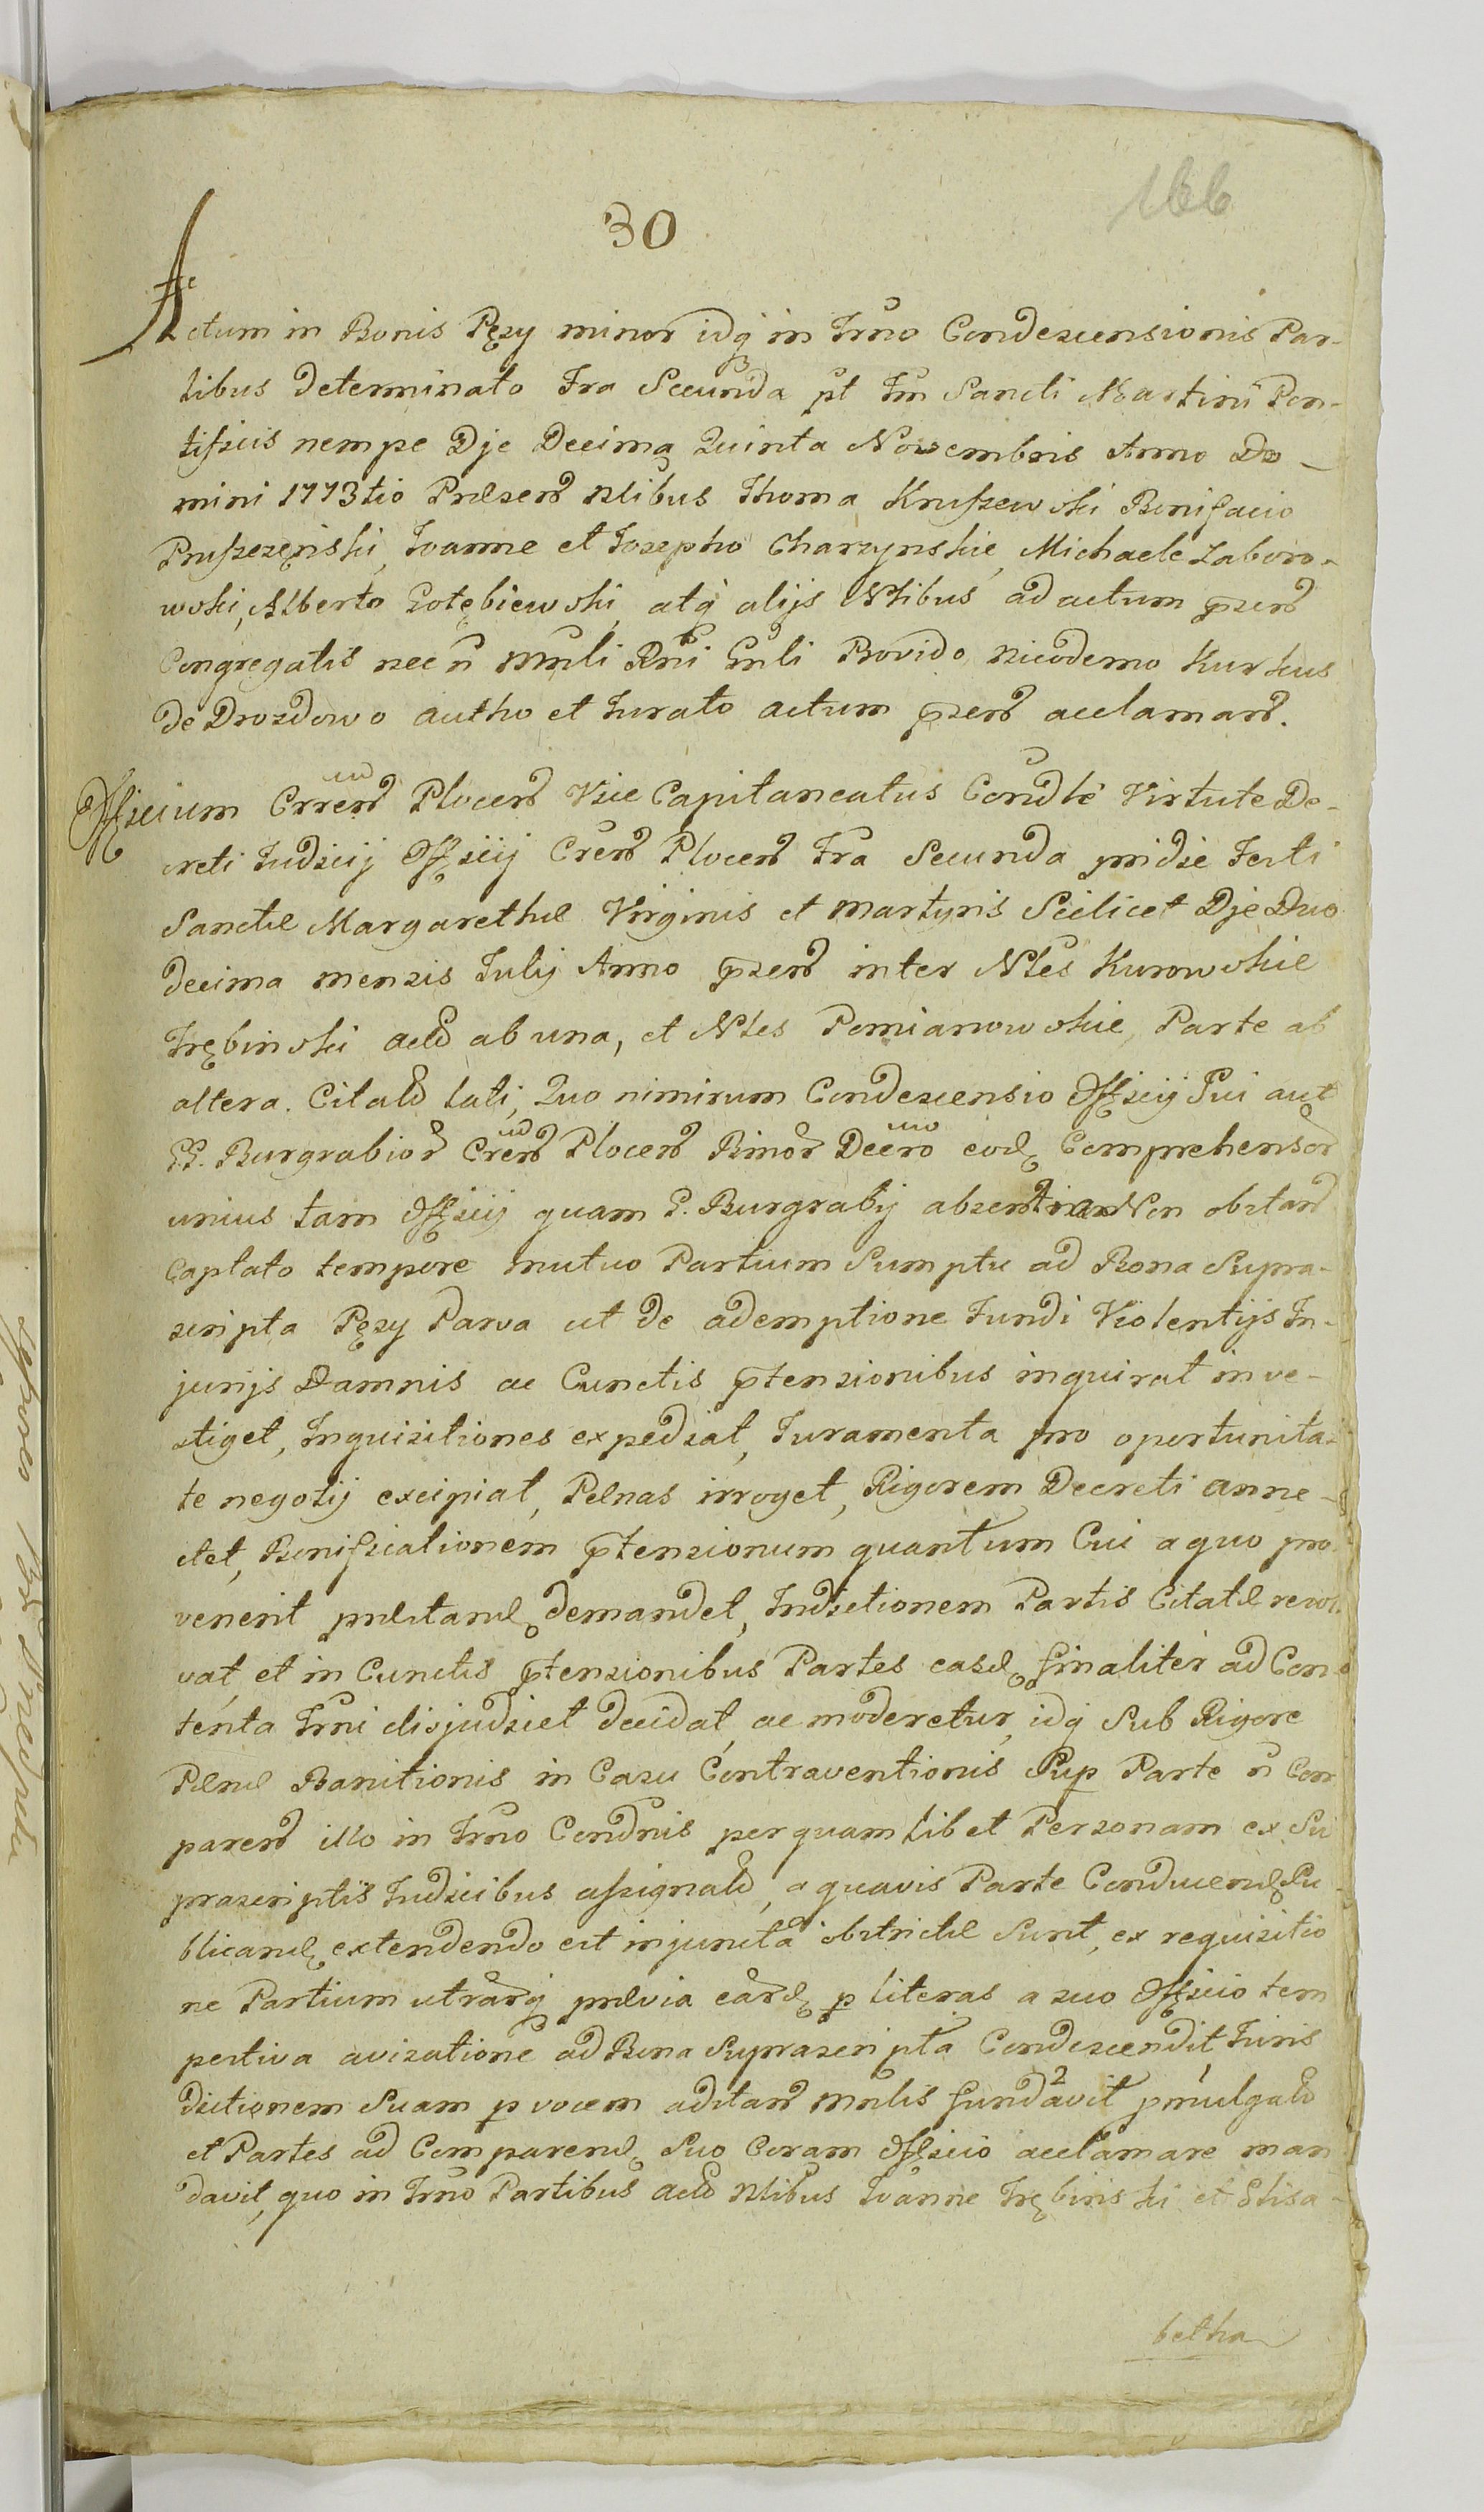 166
30
Actum in Bonis Pęzy minor idq in Trno Condescensionis Par-
tibus determinato Fra Secunda pt Fm Sancti Martini Pon-
tificis nempe Dje Decima Quinta Novembris Anno Do-
mini 1773tio Præsen Nlibus Thoma Kruszewski Bonifacio
Pruszczęński, Joanne et Josepho Charzynskie, Michaele Zaboro-
wski, Alberto Gołębiewski, atq alijs Nlibus ad actum pzen
Congregatis nec n Mnli Rni Gnli Provido Nicodemo Kurkus
de Drozdowo autho et Jurato actum pzen acclaman.
Officium Crren Plocen Vice Capitaneatus Condlé Virtute De-
creti Judicij Officij Cren Plocen Fra Secunda pridie Festi
Sanctæ Margarethæ Virginis et Martyris Scilicet Dje Duo
decima menzis Julij Anno pzen inter Nles Kurowskie
Trębinski act ab una, et Nles Pomianowskie, Parte ab
altera. Citat lati, Quo nimirum Condescensio Officij Sui aut
G. Burgrabior Cren Plocen Binor Decro eod Comprehensor
unius tam Officij quam G. Burgrabij absentia Non obstan
Captato tempore mutuo Partium Sumptu ad Bona Supra-
scripta Pęzy Parva ut de ademptione Fundi Violentijs In-
jurijs Damnis ac Cunctis ptensionibus inquirat inve-
stiget, Inquisitiones expediat, Juramenta pro oportunita-
te negotij excipiat, Pænas irroget, Rigorem Decreti anne-
ctet, Bonificationem ptensionum quantum Cui a quo pro
venerit præstand demandet, Indictionem Partis Citatæ resol
vat, et in Cunctis ptensionibus Partes easd finaliter ad Con-
tenta Trni disjudicet decidat, ac moderetur, idq Sub Rigore
Pænæ Banitionis in Casu Contraventionis Sup Parte n Com
paren illo in Trno Condnis perquamlibet Personam ex Su
prascriptis Judicibus assignat, a quavis Parte Conducend Pu-
blicand extendendo est injuncta obstrictæ Sunt, ex requisitio
ne Partium utrarq prævia eard p literas a suo Officio tem
pestiva avisatione ad Bona Suprascripta Condescendit, Juris
dictionem Suam p vocem adstan Mnlis fundavit pmulgat
et Partes ad Comparend Suo Coram Officio acclamare man
davit, quo in Trno Partibus act Nlibus Joanne Trębinski et Elisa-
betha